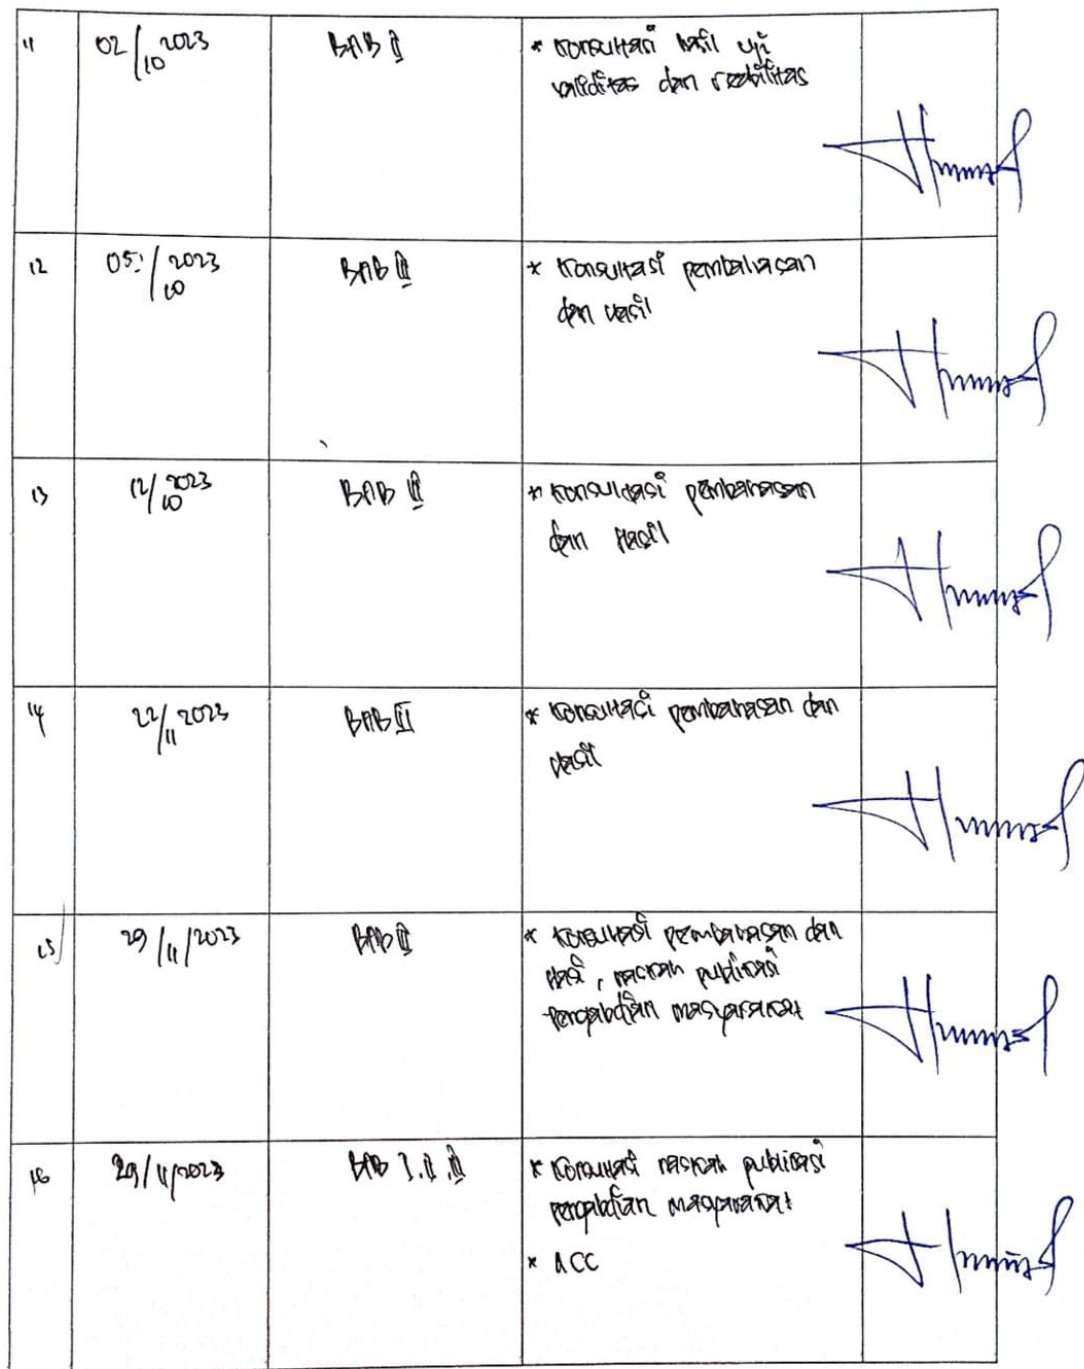 11 02/10 2023 BAB II * Konsultasi hasil uji
validitas dan reabilitas
12 05/10 2023 BAB III * Konsultasi pembahasan
dan hasil
13 12/10 2023 BAB III * Konsultasi pembahasan
dan Hasil
14 22/11 2023 BAB III * Konsultasi pembahasan dan
Hasil
15 29/11/2023 BAB III * Konsultasi pembahasan dan
, naskah publikasi
Pengabdian masyarakat
16 29/11/2023 BAB I.II.III * Konsultasi naskah publikasi
pengabdian masyarakat
* ACC